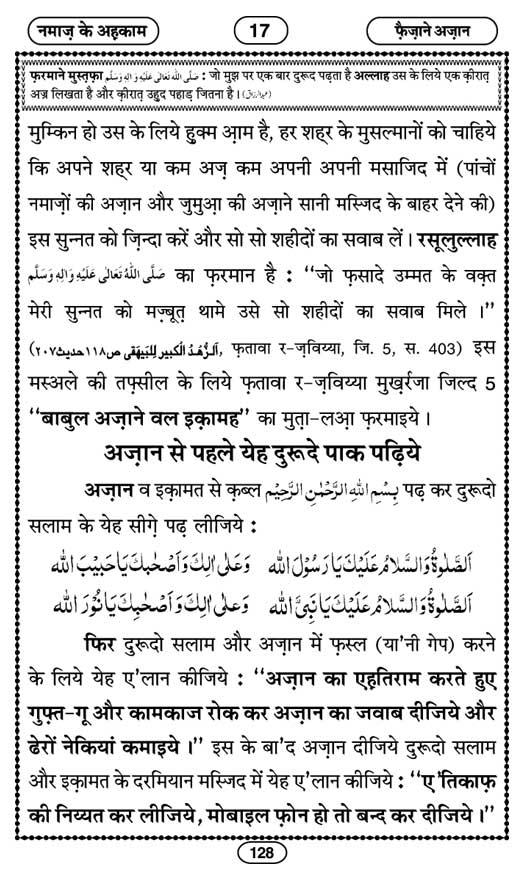 नमाज़ के अहकाम
17
फ़ैज़ाने अज़ान
फ़रमाने मुस्तफ़ा صَلَّى اللهُ تَعَالٰى عَلَيْهِ وَاٰلِهٖ وَسَلَّم : जो मुझ पर एक बार दुरूद पढ़ता है अल्लाह उस के लिये एक क़ीरात़
अज्र लिखता है और क़ीरात़ उहुद पहाड़ जितना है।
मुम्किन हो उस के लिये हुक्म आ़म है, हर शहर के मुसल्मानों को चाहिये
कि अपने शहर या कम अज़ कम अपनी अपनी मसाजिद में (पांचों
नमाज़ों की अज़ान और जुमुआ़ की अज़ाने सानी मस्जिद के बाहर देने की)
इस सुन्नत को ज़िन्दा करें और सो सो शहीदों का सवाब लें। रसूलुल्लाह
صَلَّى اللهُ تَعَالٰى عَلَيْهِ وَاٰلِهٖ وَسَلَّم का फ़रमान है : ‘‘जो फ़सादे उम्मत के वक़्त
मेरी सुन्नत को मज़्बूत़ थामे उसे सो शहीदों का सवाब मिले ।’’
(اَلزُّهْدُ الْكبير لِلْبَيْهَقى ص۱۱۸حديث۲۰۷, फ़तावा र-ज़विय्या, जि. 5, स. 403) इस
मस्अले की तफ़्सील के लिये फ़तावा र-ज़विय्या मुख़र्रजा जिल्द 5
‘‘बाबुल अज़ाने वल इक़ामह’’ का मुत़ा-लआ़ फ़रमाइये ।
अज़ान से पहले येह दुरूदे पाक पढ़िये
अज़ान व इक़ामत से क़ब्ल بِسْمِ اللهِ الرَّحْمٰنِ الرَّحِيْم पढ़ कर दुरूदो
सलाम के येह सीग़े पढ़ लीजिये :
اَلصَّلٰوةُ وَالسَّلَامُ عَلَيْكَ يَا رَسُوْلَ الله وَعَلٰى اٰلِكَ وَاَصْحٰبِكَ يَا حَبِيْبَ الله
اَلصَّلٰوةُ وَالسَّلَامُ عَلَيْكَ يَا نَبِىَّ الله وَعَلٰى اٰلِكَ وَاَصْحٰبِكَ يَا نُوْرَ الله
फिर दुरूदो सलाम और अज़ान में फ़स्ल (या’नी गेप) करने
के लिये येह ए’लान कीजिये : ‘‘अज़ान का एह़तिराम करते हुए
गुफ़्त-गू और कामकाज रोक कर अज़ान का जवाब दीजिये और
ढेरों नेकियां कमाइये ।’’ इस के बा’द अज़ान दीजिये दुरूदो सलाम
और इक़ामत के दरमियान मस्जिद में येह ए’लान कीजिये : ‘‘ए’तिकाफ़
की निय्यत कर लीजिये, मोबाइल फ़ोन हो तो बन्द कर दीजिये ।’’
128